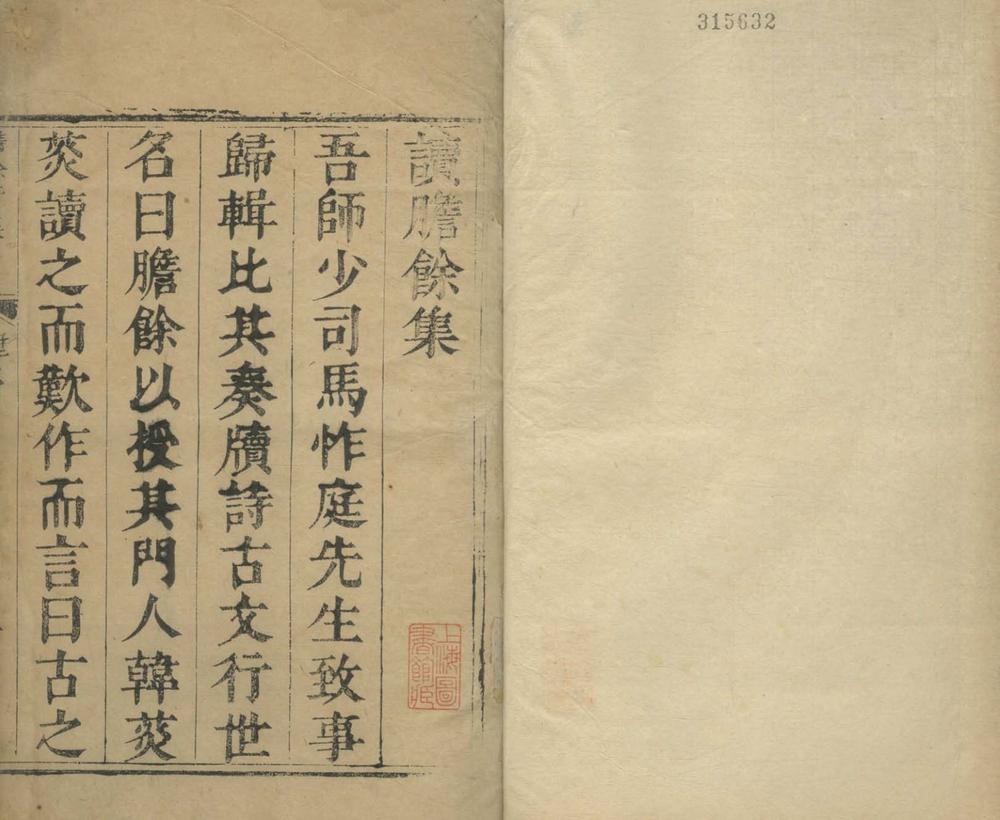 315632
讀膽餘集
吾師少司馬怍庭先生致事
歸輯比其奏牘詩古文行世
名曰膽餘以授其門人韓菼
菼讀之而歎作而言曰古之
上海圖
書館藏